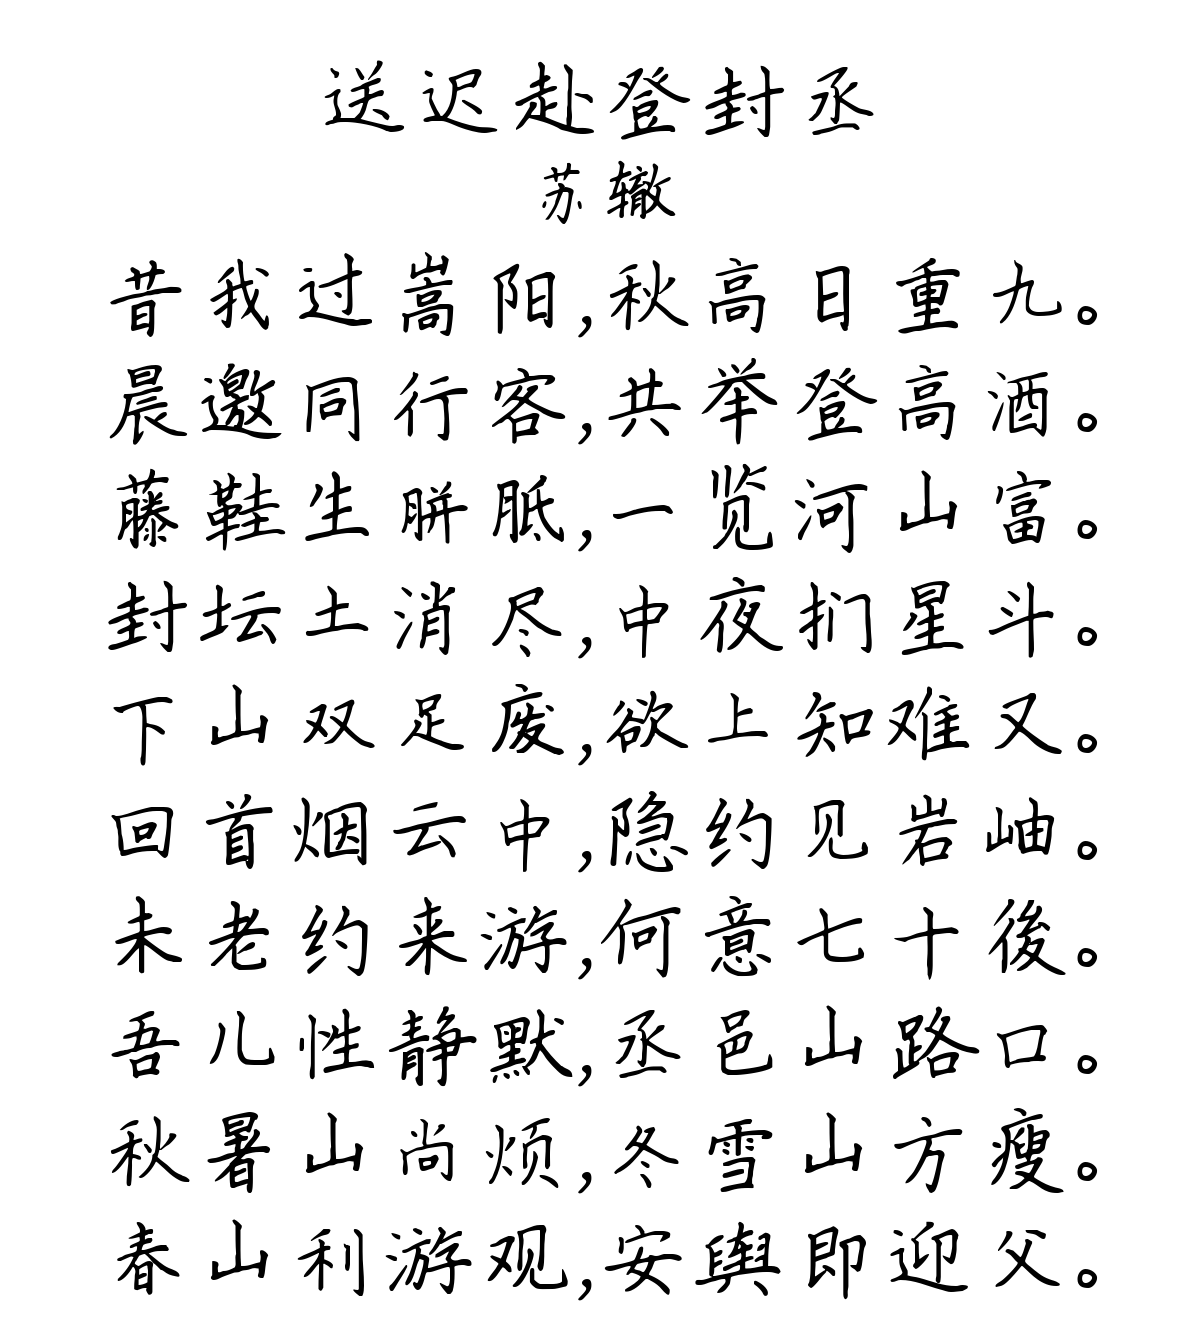 送迟赴登封丞
苏辙
昔我过嵩阳,秋高日重九。
晨邀同行客,共举登高酒。
藤鞋生胼胝,一览河山富。
封坛土消尽,中夜扪星斗。
下山双足废,欲上知难又。
回首烟云中,隐约见岩岫。
未老约来游,何意七十後。
吾儿性静默,丞邑山路口。
秋暑山尚烦,冬雪山方瘦。
春山利游观,安舆即迎父。